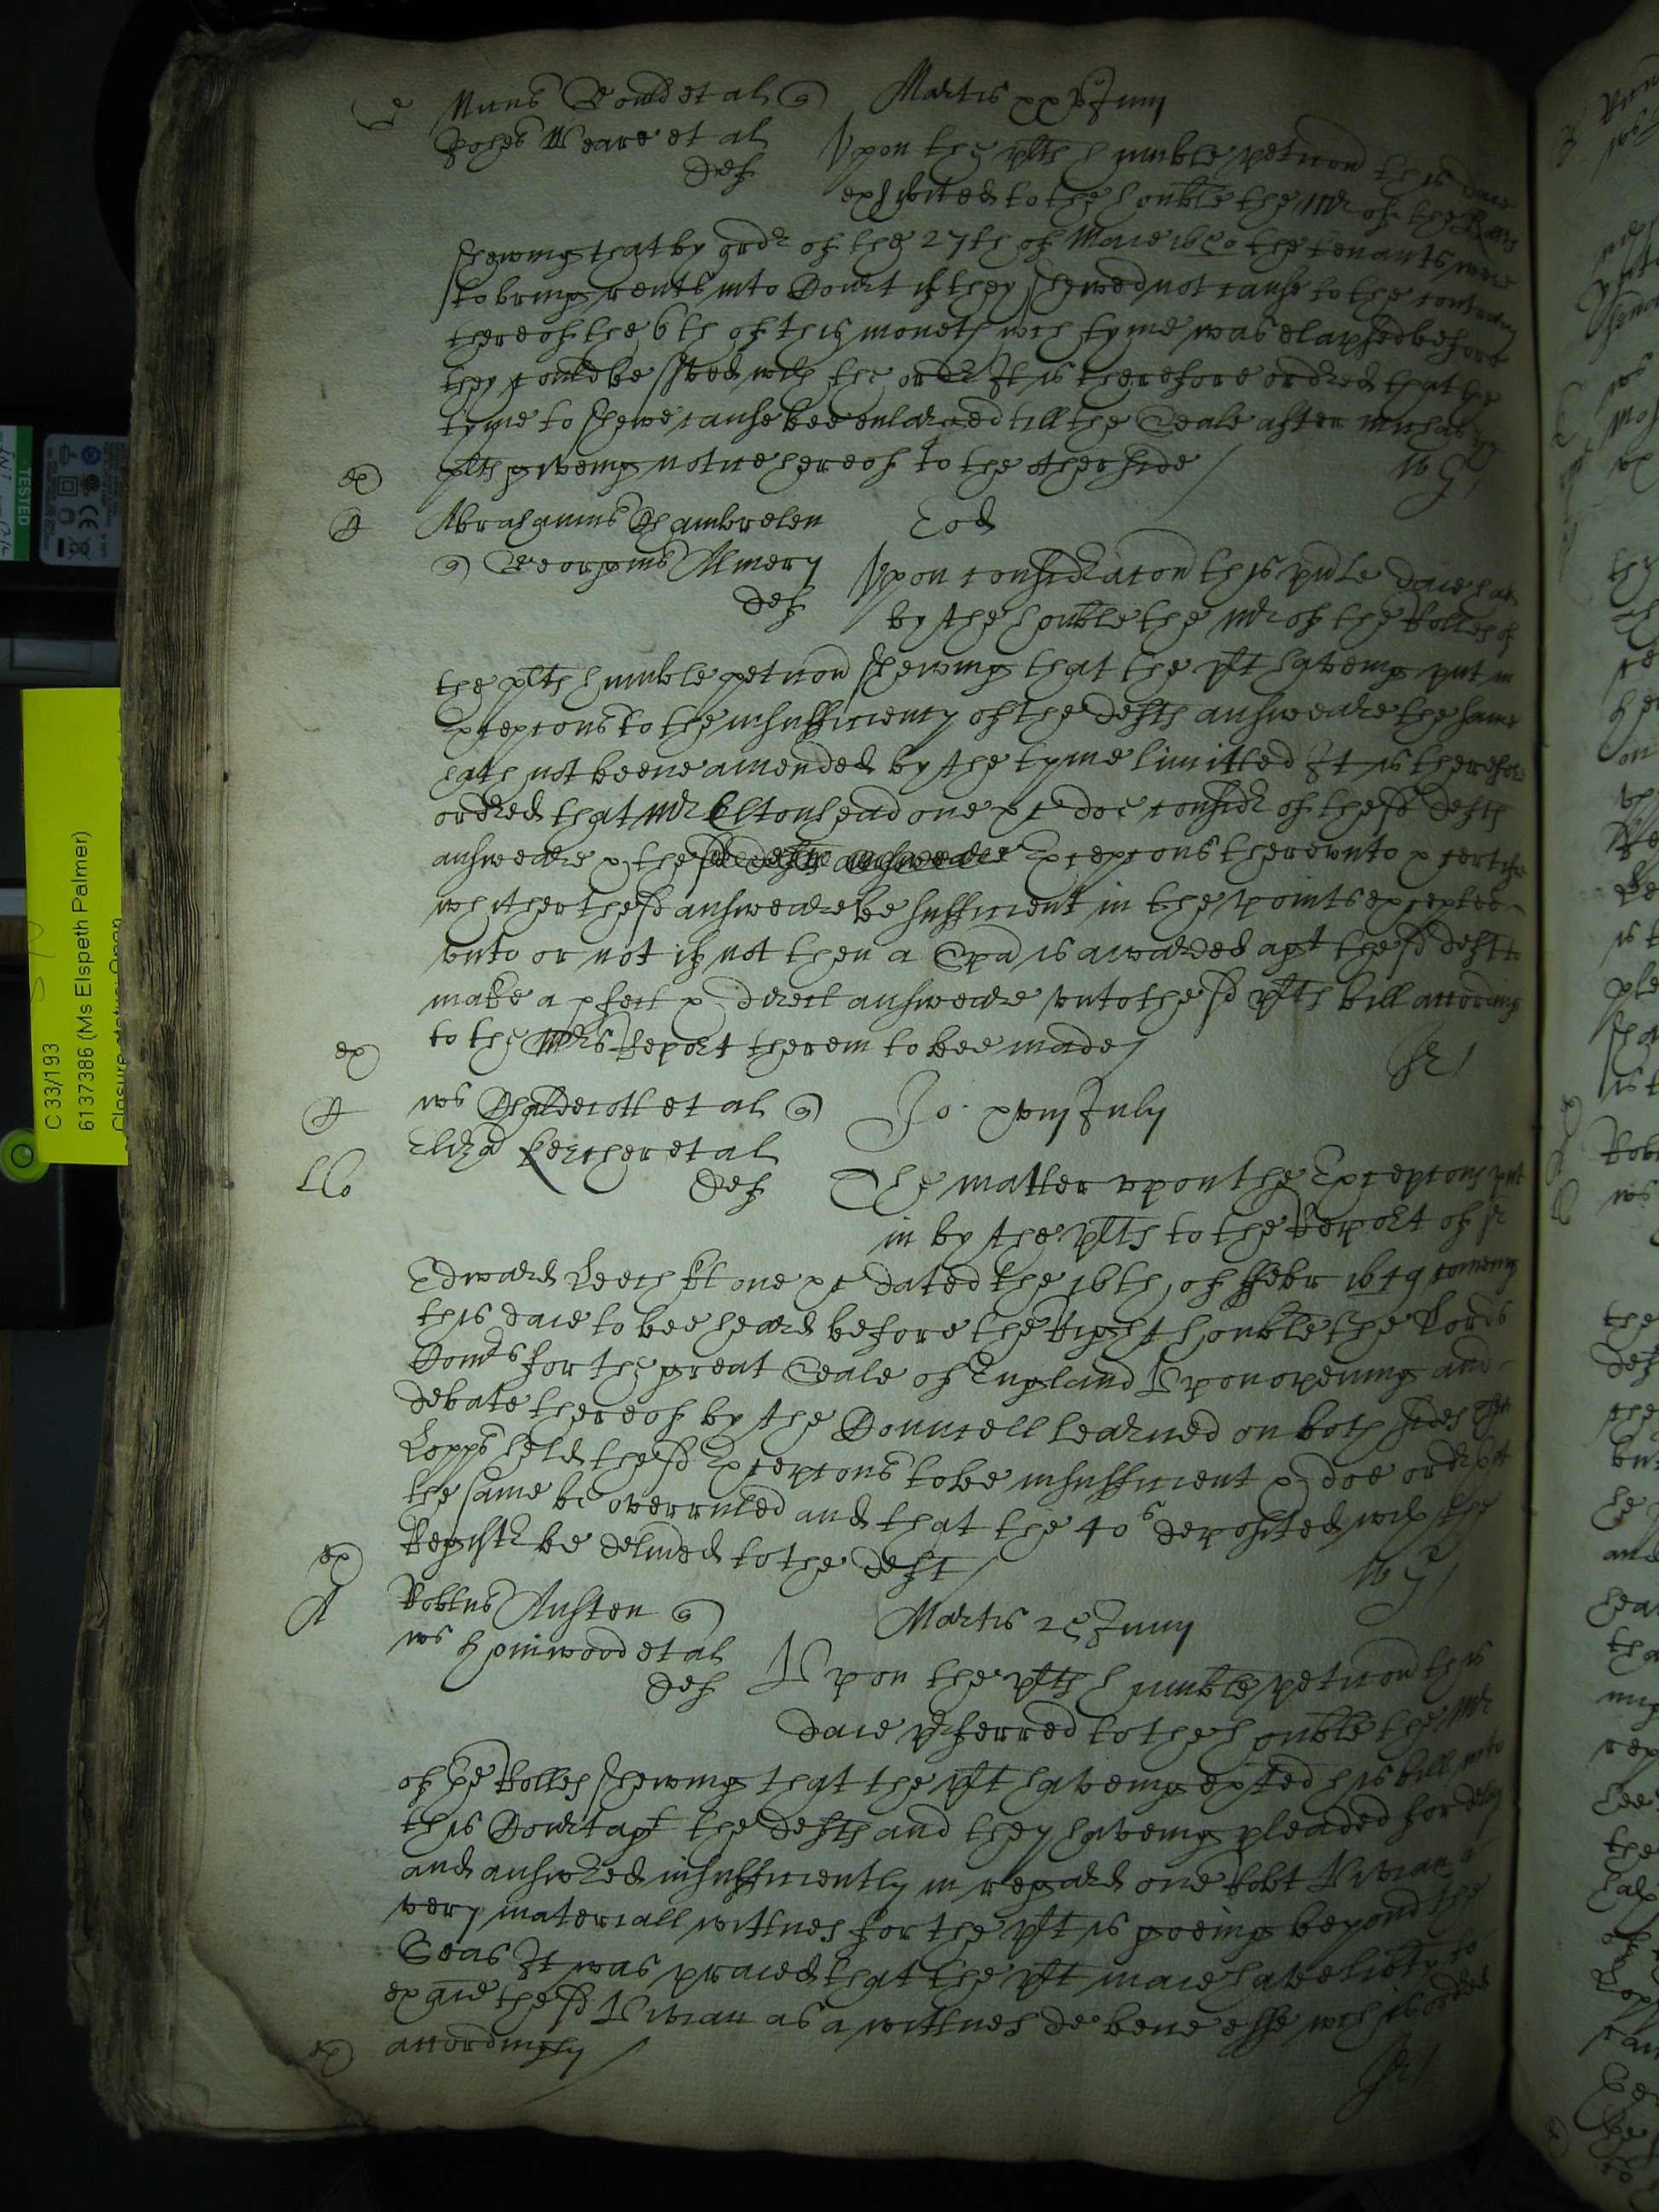 Martis xxv Junij
Upon the plts humble peticon this daie
exhibited to the honble the Mr of the Rolls
shewing that by ordr of the 27th of Maie 1650 the tenants were
to bring rents into Court if they shewed not cause to the contrary
thereof the 6th of this moneth wch tyme was elapsed before
they could be srved wth the order It is therefore ordred that the
tyme to shewe cause bee enlarged till the Seale after
plts giveing notice hereof to the other side
ex
Abrahamus Chambrelen
Eod
Georgius Almery
def
Upon considracon this pnte daie had
by the honble the Mr of the Rolles of
the plts humble peticon shewing that the plt haveing put in
Excepcons to the insufficiency of the defts answeare the same
hath not beene amended by the tyme limitted It is therefore
ordred that Mr Eltonhead one &c doe considr of the sd defts
answeare & the sd Excepcons thereunto & certifie
whither the sd answeare be sufficient in the points excepted
unto or not if not then a Spa is awarded agt the sd deft to
make a pfect & direct answeare unto the sd plts bill according
to the Mrs Report therein to bee made
ex
Ws Chaldecott et al
Jo: xviij July
Eliza Kercher et al
def
The matter upon the Excepcons put
in by the plts to the Report of Sr
Edward Leech Kt one &c dated the 16th of ffebr 1649 comeing
this daie to bee heard before the Right honble the Lords
Comrs for the great Seale of England Upon opening and
debate thereof by the Councell learned on both sides their
Lopps held the sd Excepcons to be insufficient & doe ordr that
the same be overruled and that the 40s deposited wth the
Registr be delivred to the deft
ex
Robtus Austen
Martis 25 Junij
Ws Spinwood et al
def
Upon the plts humble peticon this
daie prferred to the honble the Mr
of the Rolles shewing that the plt haveing exted his bill into
this Court agt the defts and they haveing pleaded for delay
and answred insufficiently in regard one Robt Vivian a
very materiall wittnes for the plt is goeing beyond the
Seas It was praied that the plt maie have libty to
exaie the sd Vivian as a wittnes de bene esse wch is ordred
accordingly
ex
TESTED
C 33/193
6137386 (Ms Elspeth Palmer)